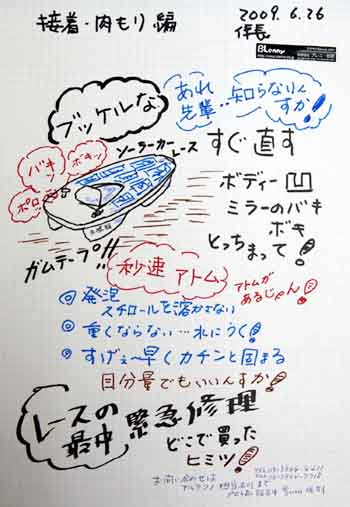 接着・肉もり編
2009.6.26
BLenny
ブッケルな
あれ
先輩・・知らないん
すか!
バキッ
ボキッ
ポロッ
ソーラーカーレース
すぐ直す
ボディー凹
ミラーのバキ
ボキ
とっちまって!
ガムテープ!!
秒速アトム
アトムが
あるじゃん!
◎発泡
スチロールを溶かさない
◎重くならない…水にうく!
◎すげぇ~早くカチンと固まる
目分量でもいいんすか!
レースの
最中
緊急修理
どこで買った
ヒミツ!
お問い合わせは